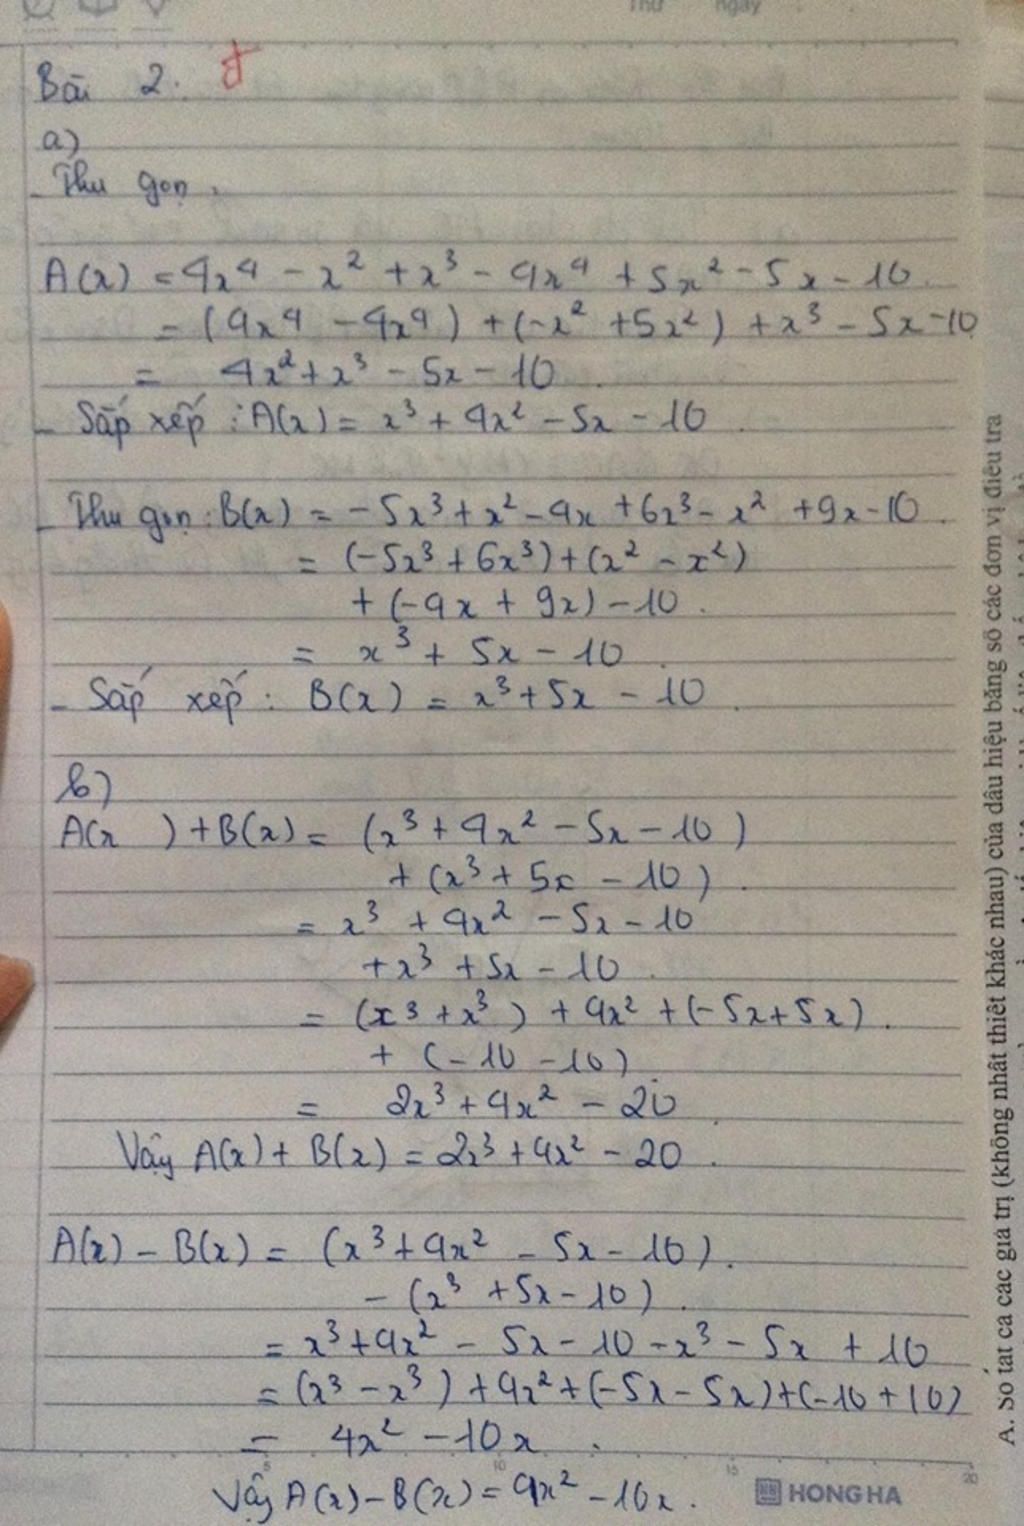 Thứ ngày
Bài 2.
a)
- Thu gọn.
A(x) = 4x⁴ - x² + x³ - 4x⁴ + 5x² - 5x - 10.
= (4x⁴ - 4x⁴) + (-x² + 5x²) + x³ - 5x - 10
= 4x² + x³ - 5x - 10.
- Sắp xếp : A(x) = x³ + 4x² - 5x - 10.
- Thu gọn : B(x) = -5x³ + x² - 4x + 6x³ - x² + 9x - 10.
= (-5x³ + 6x³) + (x² - x²)
+ (-4x + 9x) - 10.
= x³ + 5x - 10.
- Sắp xếp : B(x) = x³ + 5x - 10.
b)
A(x ) + B(x) = (x³ + 4x² - 5x - 10)
+ (x³ + 5x - 10).
= x³ + 4x² - 5x - 10
+ x³ + 5x - 10.
= (x³ + x³) + 4x² + (-5x + 5x).
+ (-10 - 10)
= 2x³ + 4x² - 20.
Vậy A(x) + B(x) = 2x³ + 4x² - 20.
A(x) - B(x) = (x³ + 4x² - 5x - 10).
- (x³ + 5x - 10).
= x³ + 4x² - 5x - 10 - x³ - 5x + 10
= (x³ - x³) + 4x² + (-5x - 5x) + (-10 + 10)
= 4x² - 10x.
Vậy A(x) - B(x) = 4x² - 10x.
5 10 15 20
HONG HA
A. Số tất cả các giá trị (không nhất thiết khác nhau) của dấu hiệu bằng số các đơn vị điều tra